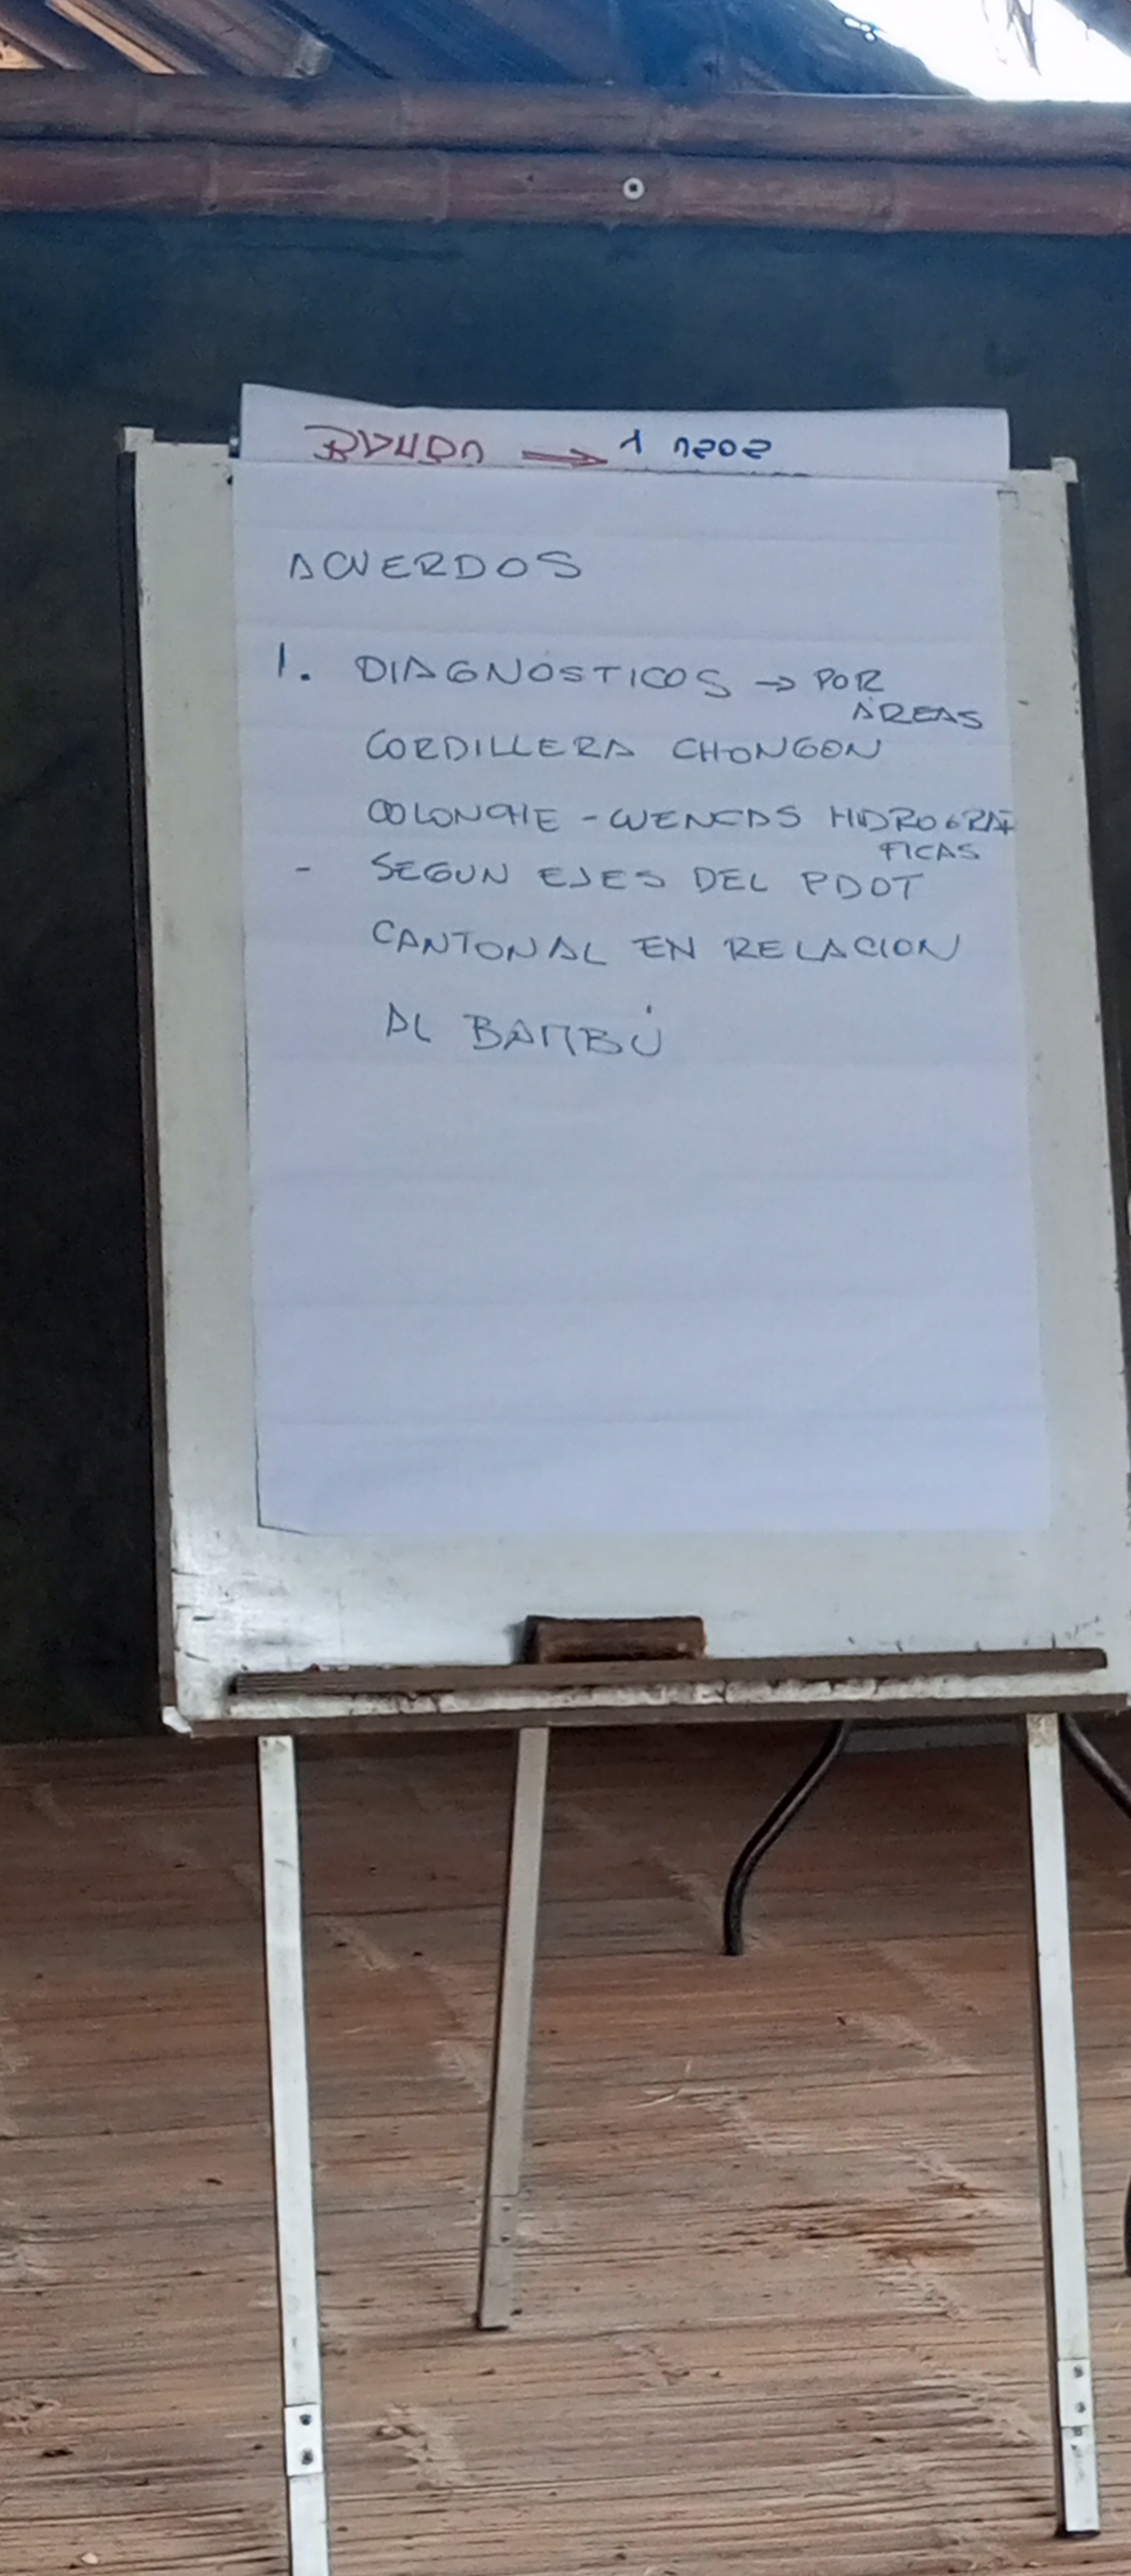 ACUERDOS
1. DIAGNÓSTICOS → POR
ÁREAS
CORDILLERA CHONGON
COLONCHE - CUENCAS HIDROGRÁ
FICAS
- SEGUN EJES DEL PDOT
CANTONAL EN RELACION
AL BAMBÚ